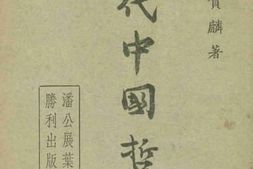 賀麟著
代中國哲
潘公展葉
勝利出版